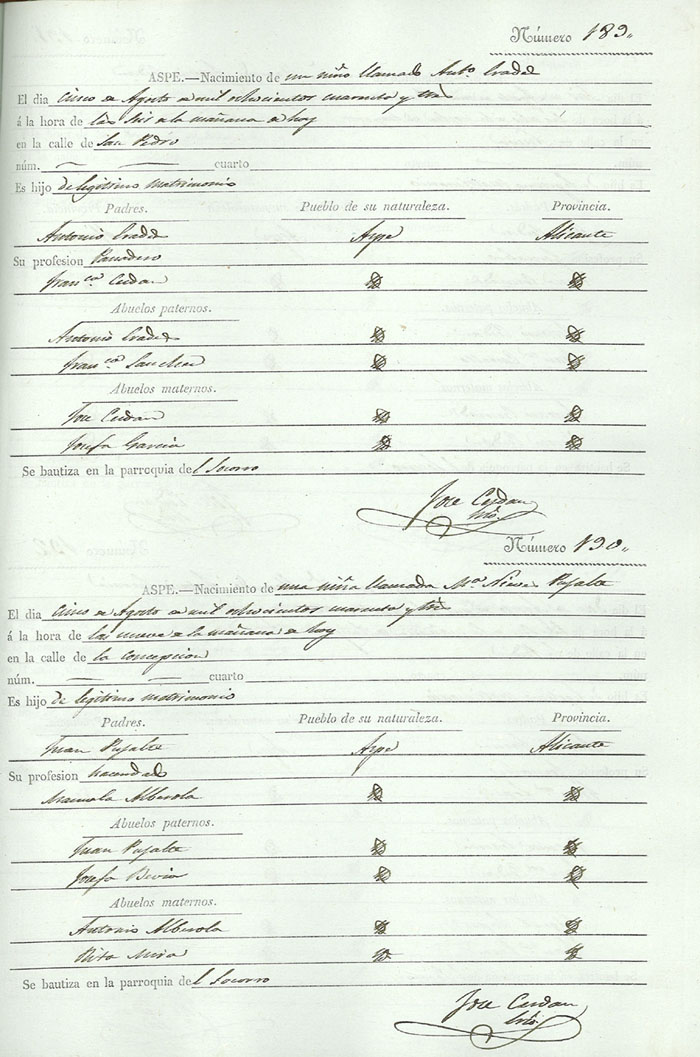 Número 189.
ASPE.—Nacimiento de un niño llamado Anto. Cradel
El dia cinco de Agosto de mil ochocientos cuarenta y tres
á la hora de las seis de la mañana de hoy
en la calle de San Pedro
núm. — — cuarto
Es hijo de legitimo matrimonio
Padres. Pueblo de su naturaleza. Provincia.
Antonio Aspe Alicante
Su profesion Panadero
Franca. Cerdan
Abuelos paternos.
Antonio
Franca. Sanchez
Abuelos maternos.
Jose Cerdan
Josefa Garcia
Se bautiza en la parroquia del Socorro
Jose Cerdan
Número 190.
ASPE.—Nacimiento de una niña llamada Ma. Nieves Pujalte
El dia cinco de Agosto de mil ochocientos cuarenta y tres
á la hora de las nueve de la mañana de hoy
en la calle de la Concepcion
núm. — — cuarto
Es hijo de legitimo matrimonio
Padres. Pueblo de su naturaleza. Provincia.
Juan Pujalte Aspe Alicante
Su profesion hacendado
Manuela Alberola
Abuelos paternos.
Juan Pujalte
Josefa
Abuelos maternos.
Antonio Alberola
Rita Mira
Se bautiza en la parroquia del Socorro
Jose Cerdan